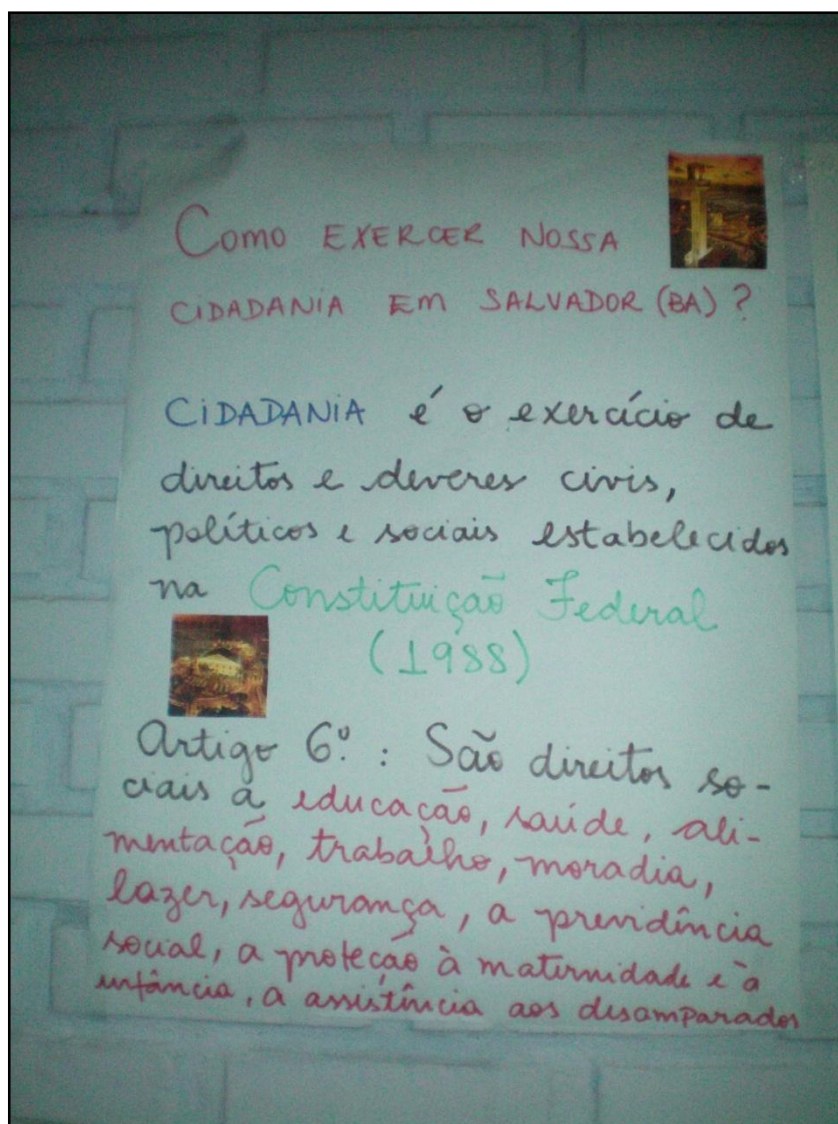 COMO EXERCER NOSSA
CIDADANIA EM SALVADOR (BA) ?
CIDADANIA é o exercício de
direitos e deveres civis,
políticos e sociais estabelecidos
na Constituição Federal
(1988)
Artigo 6º. : São direitos so-
ciais a educação, saúde, ali-
mentação, trabalho, moradia,
lazer, segurança, a previdência
social, a proteção à maternidade e à
infância, a assistência aos desamparados